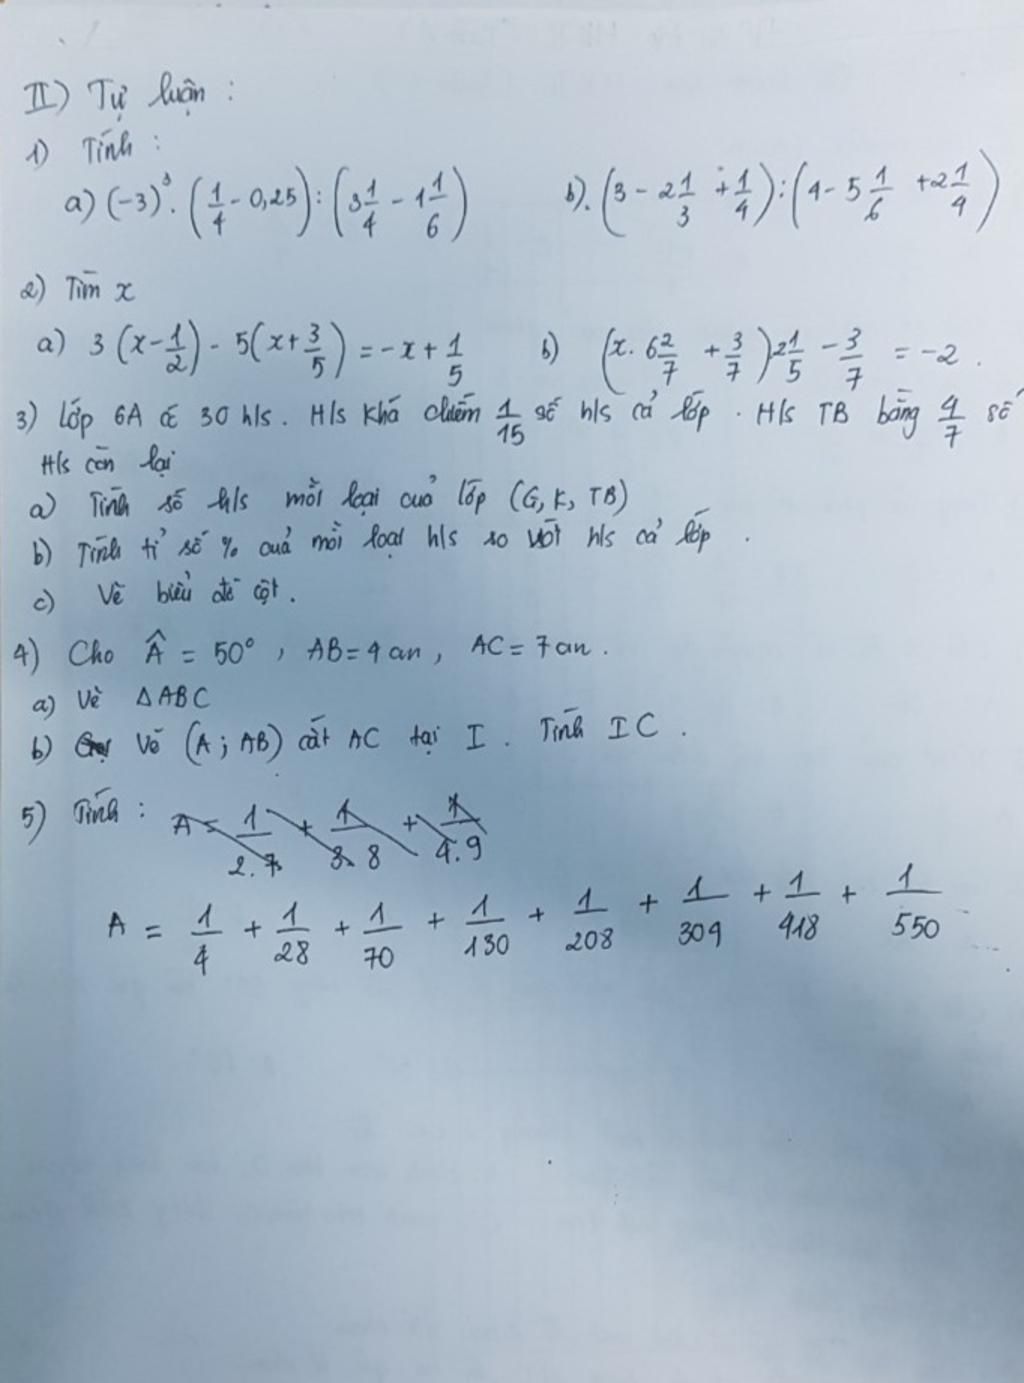 II) Tự luận :
1) Tính :
a) (-3)³. (1/4 - 0,25) : (3 1/4 - 1 1/6) b). (3 - 2 1/3 + 1/4) : (4 - 5 1/6 + 2 1/4)
2) Tìm x
a) 3 (x - 1/2) - 5(x + 3/5) = -x + 1/5 b) (x. 6 2/7 + 3/7) 2 1/5 - 3/7 = -2 .
3) Lớp 6A có 30 h/s. H/s khá chiếm 1/15 số h/s cả lớp . H/s TB bằng 4/7 số
H/s còn lại
a) Tính số h/s mỗi loại cuả lớp (G, K, TB)
b) Tính tỉ số % cuả mỗi loại h/s so với h/s cả lớp .
c) Vẽ biểu đồ cột .
4) Cho Â = 50° , AB = 4 cm , AC = 7 cm .
a) Vẽ △ABC
b) Vẽ (A ; AB) cắt AC tại I . Tính IC .
5) Tính : A = 1/2.7 + 1/3.8 + 1/4.9
A = 1/4 + 1/28 + 1/70 + 1/130 + 1/208 + 1/304 + 1/418 + 1/550